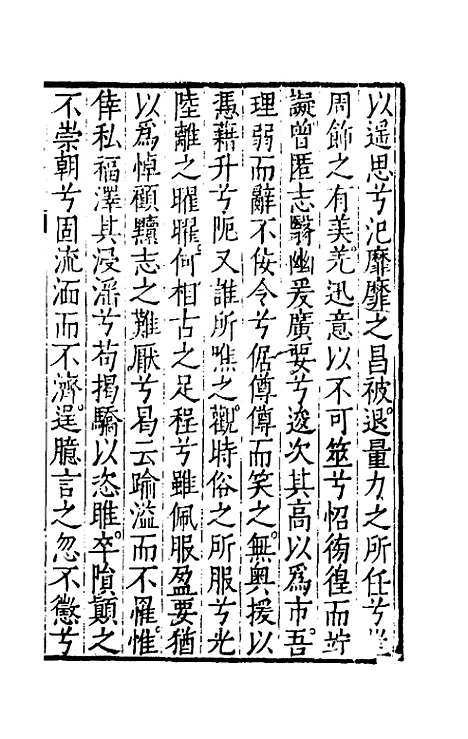 以遥思兮汜靡靡之昌被退量力之所任兮
周飾之有美羌迅意以不可並兮怊徬徨而竚
凝曾匿志翳幽爰廣娶兮逡次其高以爲市吾
理弱而辭不佞令兮倨僔僔而笑之無輿援以
馮藉升兮阨又誰所唯之觀時俗之所服兮光
陸離之曜曜何相古之足程兮雖佩服盈要猶
以爲悼顧黷志之難厭兮曷云踰溢而不罹惟
倖私福澤其浸滛兮苟揭驕以恣睢卒隕顛之
不崇朝兮固流湎而不濟逞臆言之忽不懲兮